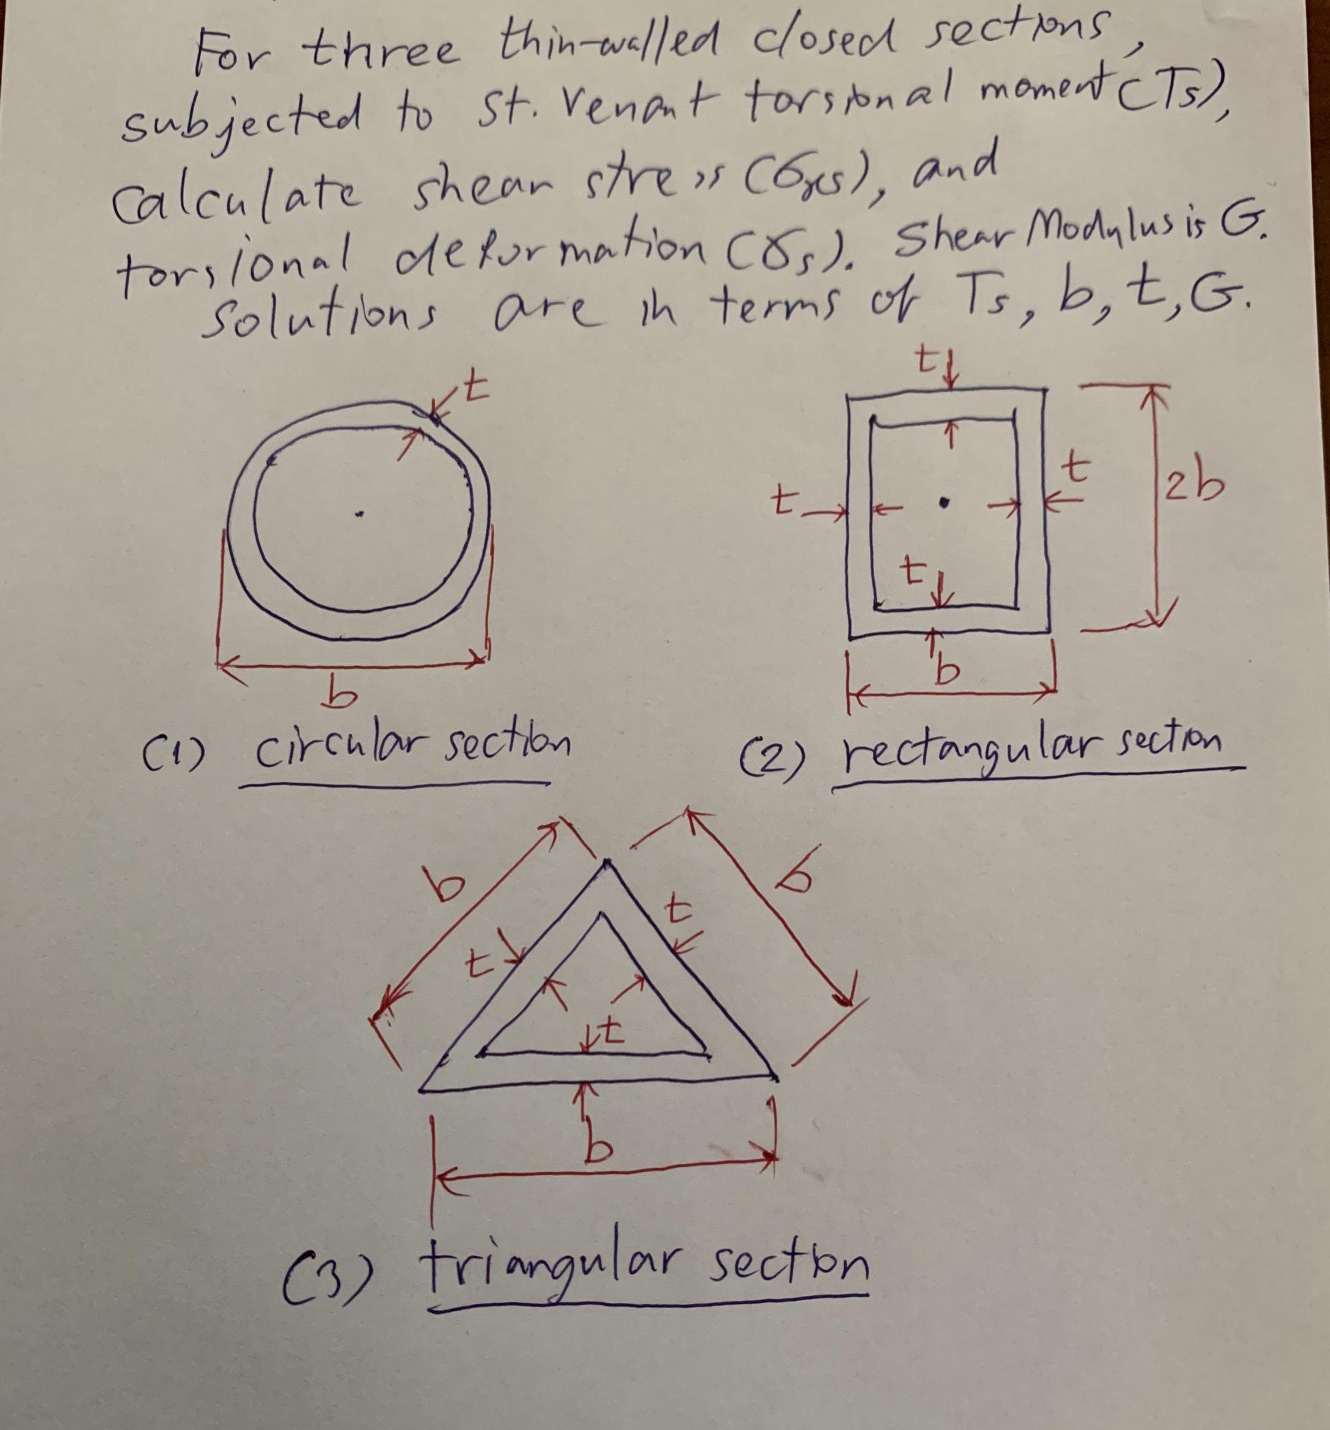 For three thin-walled closed sections,
subjected to St. Venant torsional moment (Ts),
Calculate shear stress (σxs), and
torsional deformation (γs). Shear Modulus is G.
Solutions are in terms of Ts, b, t, G.
t
b
(1) circular section
t
t
t
t
2b
b
(2) rectangular section
b
b
t
t
t
b
(3) triangular section